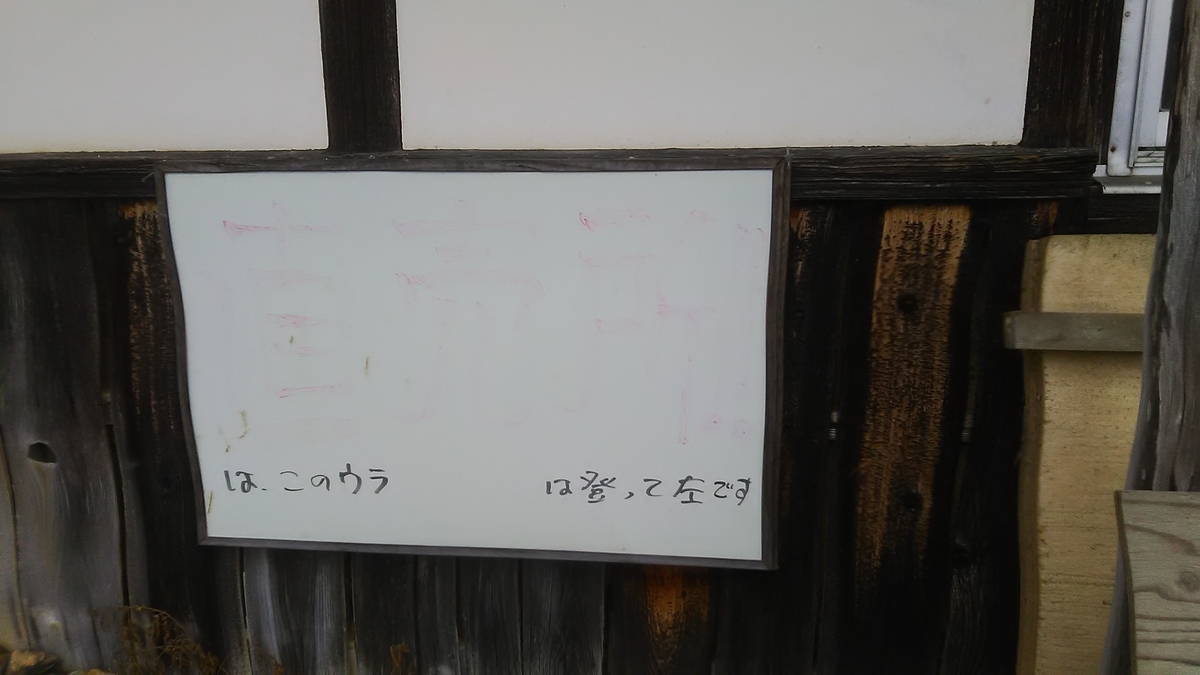 直売所
は、このウラ
は登って左です